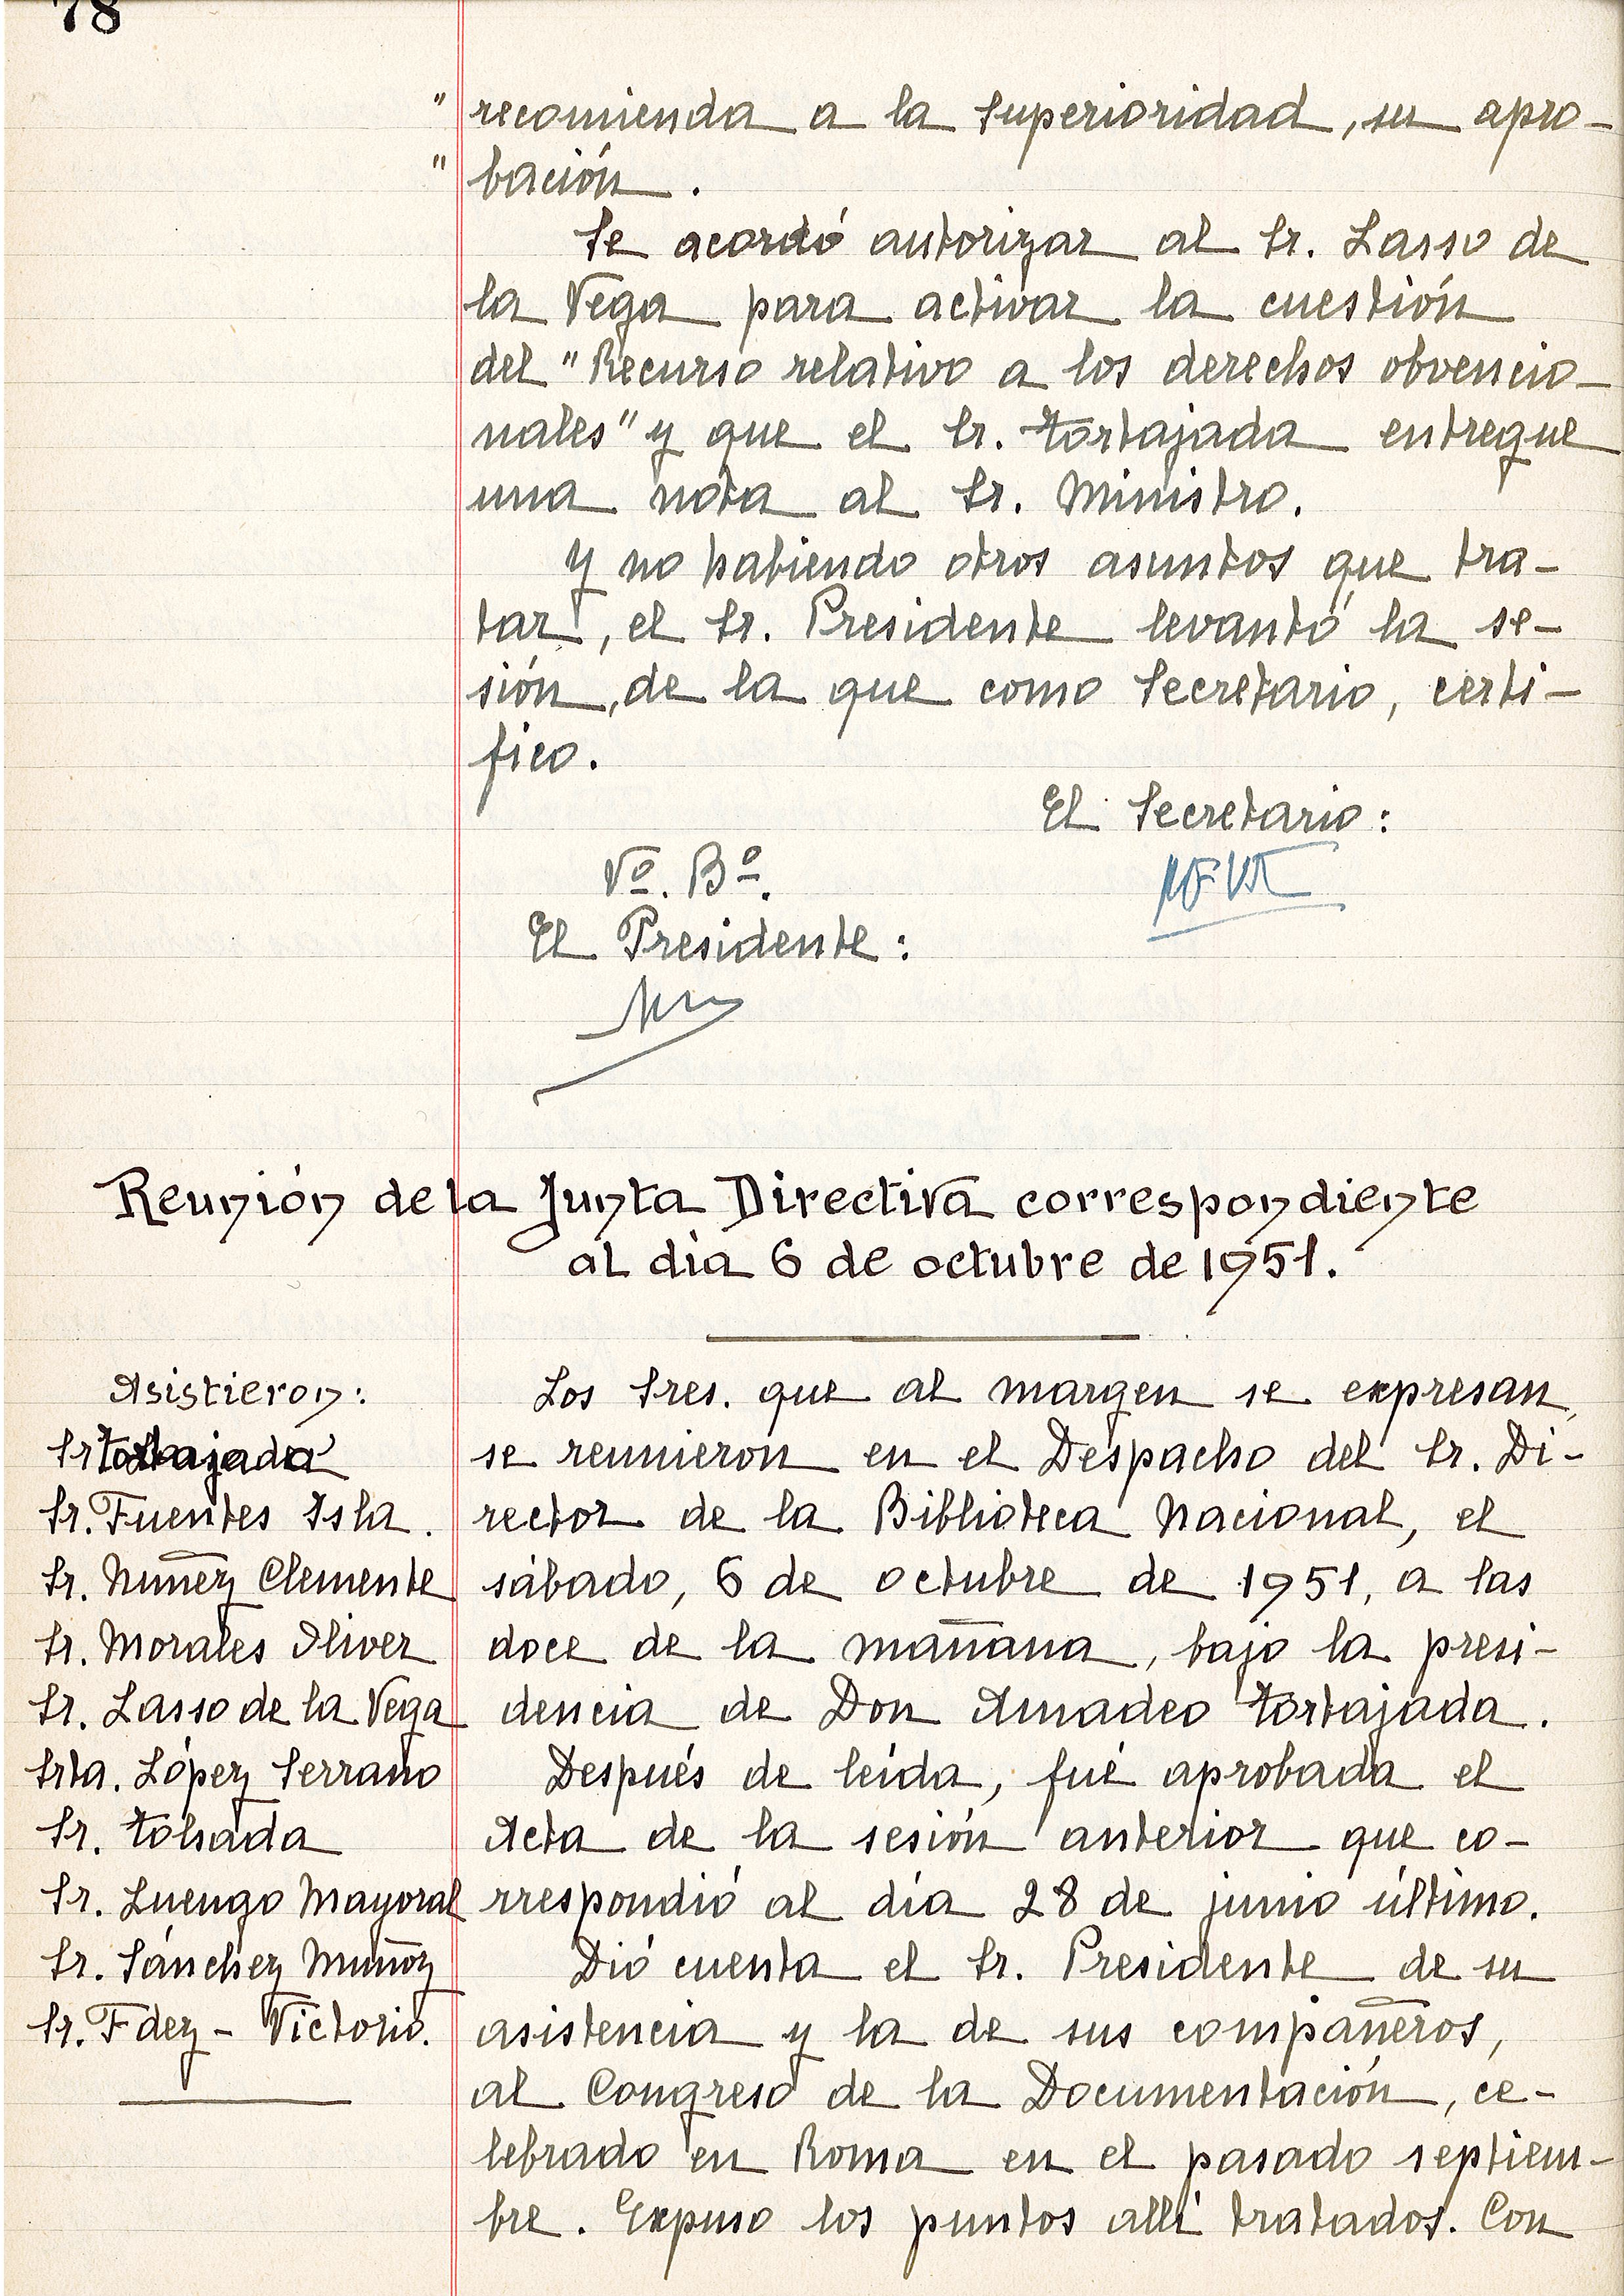 78
" recomienda a la Superioridad, su apro-
" bación.
Se acordó autorizar al Sr. Lasso de
la Vega para activar la cuestión
del "Recurso relativo a los derechos obvencio-
nales" y que el Sr. Tortajada entregue
una nota al Sr. Ministro.
Y no habiendo otros asuntos que tra-
tar, el Sr. Presidente levantó la se-
sión, de la que como Secretario, certi-
fico.
El Secretario:
Vº. Bº.
El Presidente:
Reunión de la Junta Directiva correspondiente
al dia 6 de octubre de 1951.
Asistieron:
Sr Tortajada
Sr. Fuentes Isla.
Sr. Nuñez Clemente
Sr. Morales Oliver
Sr. Lasso de la Vega
Srta. López Serrano
Sr. Tolsada
Sr. Luengo Mayoral
Sr. Sánchez Muñoz
Sr. Fdez - Victorio.
Los Sres. que al margen se expresan,
se reunieron en el Despacho del Sr. Di-
rector de la Biblioteca Nacional, el
sábado, 6 de octubre de 1951, a las
doce de la mañana, bajo la presi-
dencia de Don Amadeo Tortajada.
Después de leída, fué aprobada el
Acta de la sesión anterior que co-
rrespondió al día 28 de junio último.
Dió cuenta el Sr. Presidente de su
asistencia y la de sus compañeros,
al Congreso de la Documentación, ce-
lebrado en Roma en el pasado septiem-
bre. Expuso los puntos allí tratados. Con